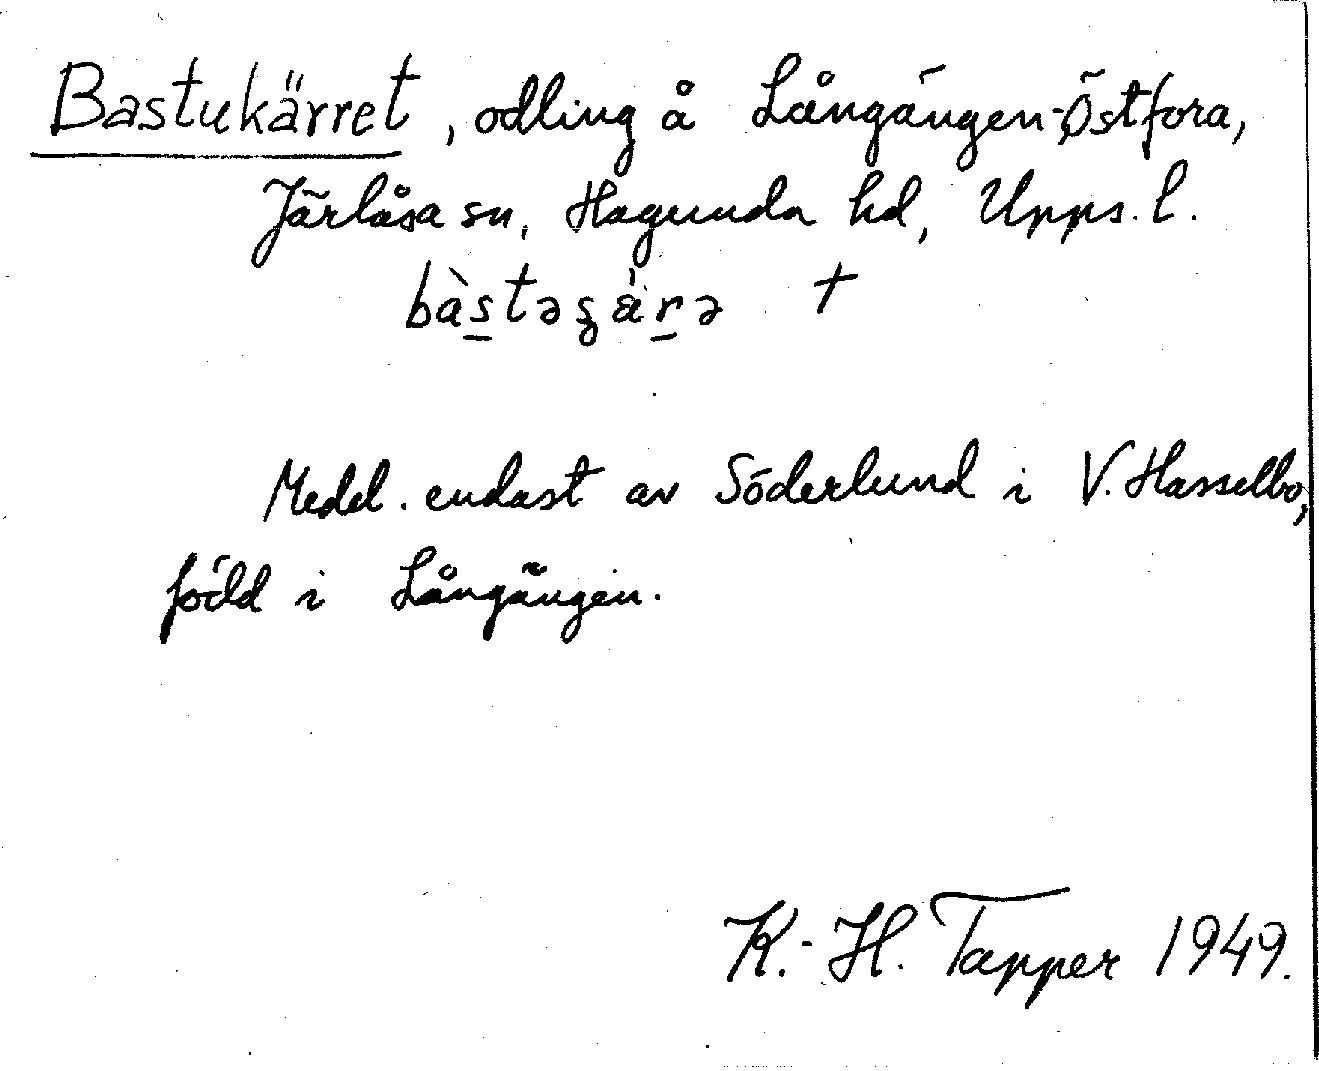 Bastukärret, odling å Långängen-Östfora,
Järlåsa sn, Hagunda hd, Upps. l.
bàs̲təʂä̀r̲ə †
Medd. endast av Söderlund i V. Hasselbo,
född i Långängen.
K.-H. Tapper 1949.